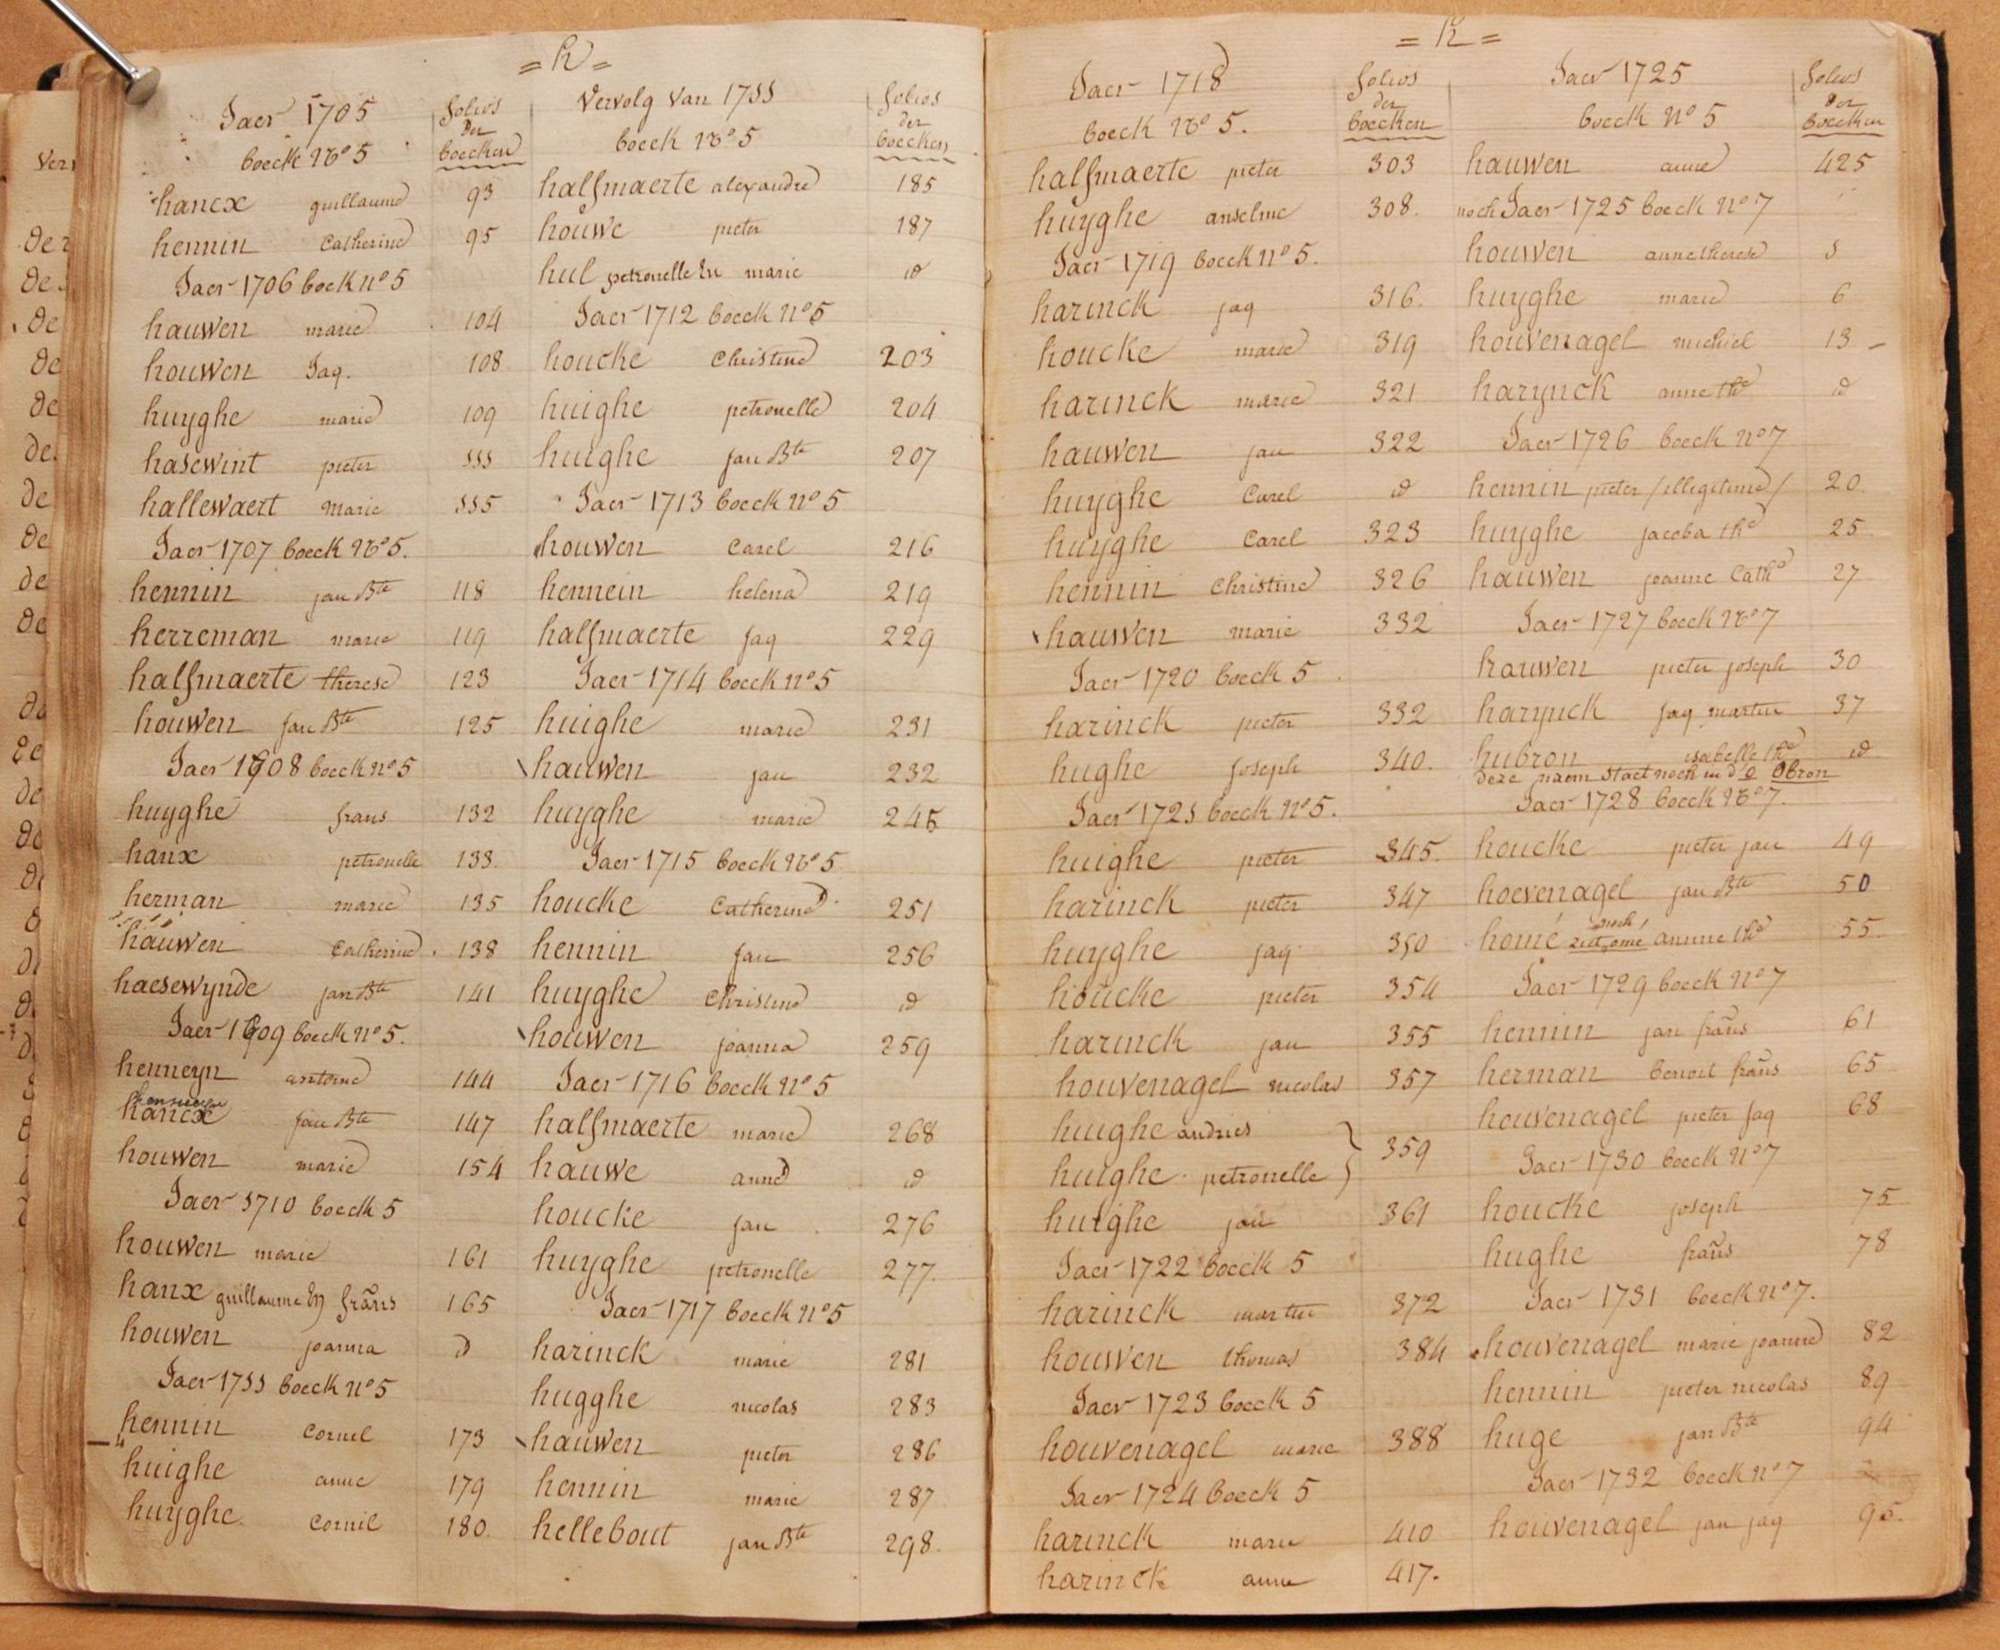 = h =
Jaer 1705
boeck No 5
folios
der
boecken
hancx guillaume 93
hennin Catherine 95
Jaer 1706 boek no 5
hauwen marie 104
houwen Jaq. 108
huyghe marie 109
hasewint pieter 111
hallewaert Marie 115
Jaer 1707 boeck No 5.
hennin jan Bte 118
herreman marie 119
halfmaerte therese 123
houwen jan Bte 125
Jaer 1708 boeck no 5
huyghe frans 132
hanx petronelle 133.
herman marie 135
hauwen Catherine 138
haesewynde jan Bte 141
Jaer 1709 boeck no 5.
henneyn antoine 144
hancx jan Bte 147
houwen marie 154
Jaer 1710 boeck 5
houwen marie 161
hanx guillaume En frans 165
houwen joanna d
Jaer 1711 boeck no 5
hennin Cornel 173
huighe anne 179
huyghe Cornil 180.
Vervolg van 1711
boeck No 5
folios
der
boecken
halfmaerte alexandre 185
houwe pieter 187
hul petronelle En marie id
Jaer 1712 boeck no 5
houcke Christine 203
huighe petronelle 204
huighe jan Bte 207
Jaer 1713 boeck no 5
houwen Carel 216
hennein helena 219
halfmaerte jaq 229
Jaer 1714 boeck no 5
huighe marie 231
hauwen jan 232
huyghe marie 245
Jaer 1715 boeck No 5
houcke Catherine 251
hennin jan 256
huyghe Christine id
houwen joanna 259
Jaer 1716 boeck no 5
halfmaerte marie 268
hauwe anne id
houcke jan 276
huyghe petronelle 277.
Jaer 1717 boeck no 5
harinck marie 281
hugghe nicolas 283
hauwen pieter 286
hennin marie 287
hellebout jan Bte 298.
= h =
Jaer 1718
boeck No 5.
folios
der
boecken
halfmaerte pieter 303
huyghe anselme 308.
Jaer 1719 boeck no 5.
harinck jaq 316.
houcke marie 319
harinck marie 321
hauwen jan 322
huyghe Carel id
huyghe Carel 323
hennin Christine 326
hauwen marie 332
Jaer 1720 boeck 5
harinck pieter 332
hughe joseph 340.
Jaer 1721 boeck no 5.
huighe pieter 345.
harinck pieter 347
huyghe jaq 350
houcke pieter 354
harinck jan 355
houvenagel nicolas 357
huighe andries
huighe petronelle } 359
huighe jan 361
Jaer 1722 boeck 5
harinck martin 372
houwen thomas 384
Jaer 1723 boeck 5
houvenagel marie 388
Jaer 1724 boeck 5
harinck marie 410
harinck anne 417.
Jaer 1725
boeck no 5
folios
der
boecken
hauwen anne 425
noch Jaer 1725 boeck no 7
houwen anne therese 1
huyghe marie 6
houvenagel michiel 13
harynck anne the id
Jaer 1726 boeck no 7
hennin pieter /illegitime/ 20
huyghe jacoba the 25
hauwen joanne Cathe 27
Jaer 1727 boeck No 7
hauwen pieter joseph 30
harynck jaq martin 37
hubron isabelle the id
deze naem staet noch in d'o Obron
Jaer 1728 boeck No 7.
houcke pieter jan 49
hoevenagel jan Bte 50
homé anne the 55
Jaer 1729 boeck no 7
hennin jan frans 61
herman benoit frans 65
houvenagel pieter jaq 68
Jaer 1730 boeck no 7
houcke joseph 75
hughe frans 78
Jaer 1731 boeck no 7.
houvenagel marie joanne 82
hennin pieter nicolas 89
huge jan Bte 94
Jaer 1732 boeck no 7
houvenagel jan jaq 95.